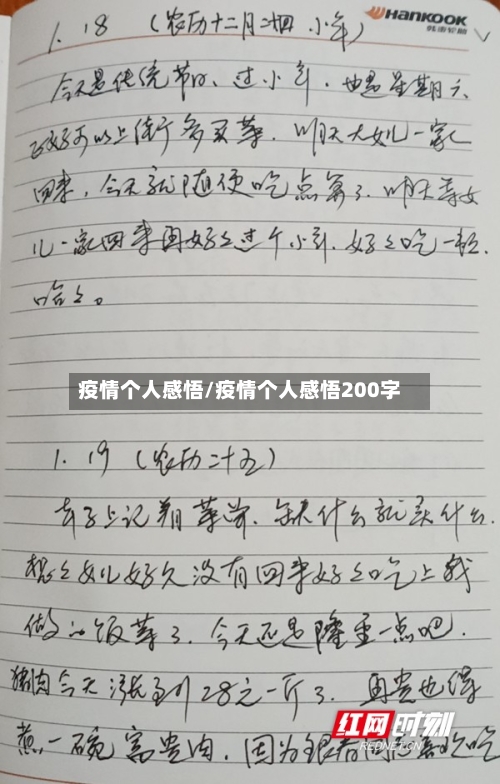 HANKOOK
韩泰轮胎
1.18 (农历十二月二十四 小年)
今天是传统节日、过小年.也是星期六.
正好可以上街多买菜.明天大女儿一家
回来,今天就随便吃点算了.明天等女
儿一家回来再好好过个小年.好好吃一顿.
哈哈。
疫情个人感悟/疫情个人感悟200字
1.19 (农历二十五)
去了上记期菜单.缺什么就买什么.
想想女儿好久没有回来好好吃上我
做的饭菜了.今天还是隆重一点吧.
猪肉今天涨到28元一斤了.再贵也得
煮一碗富贵肉,因为
吃
红网时刻
REDNET.CN